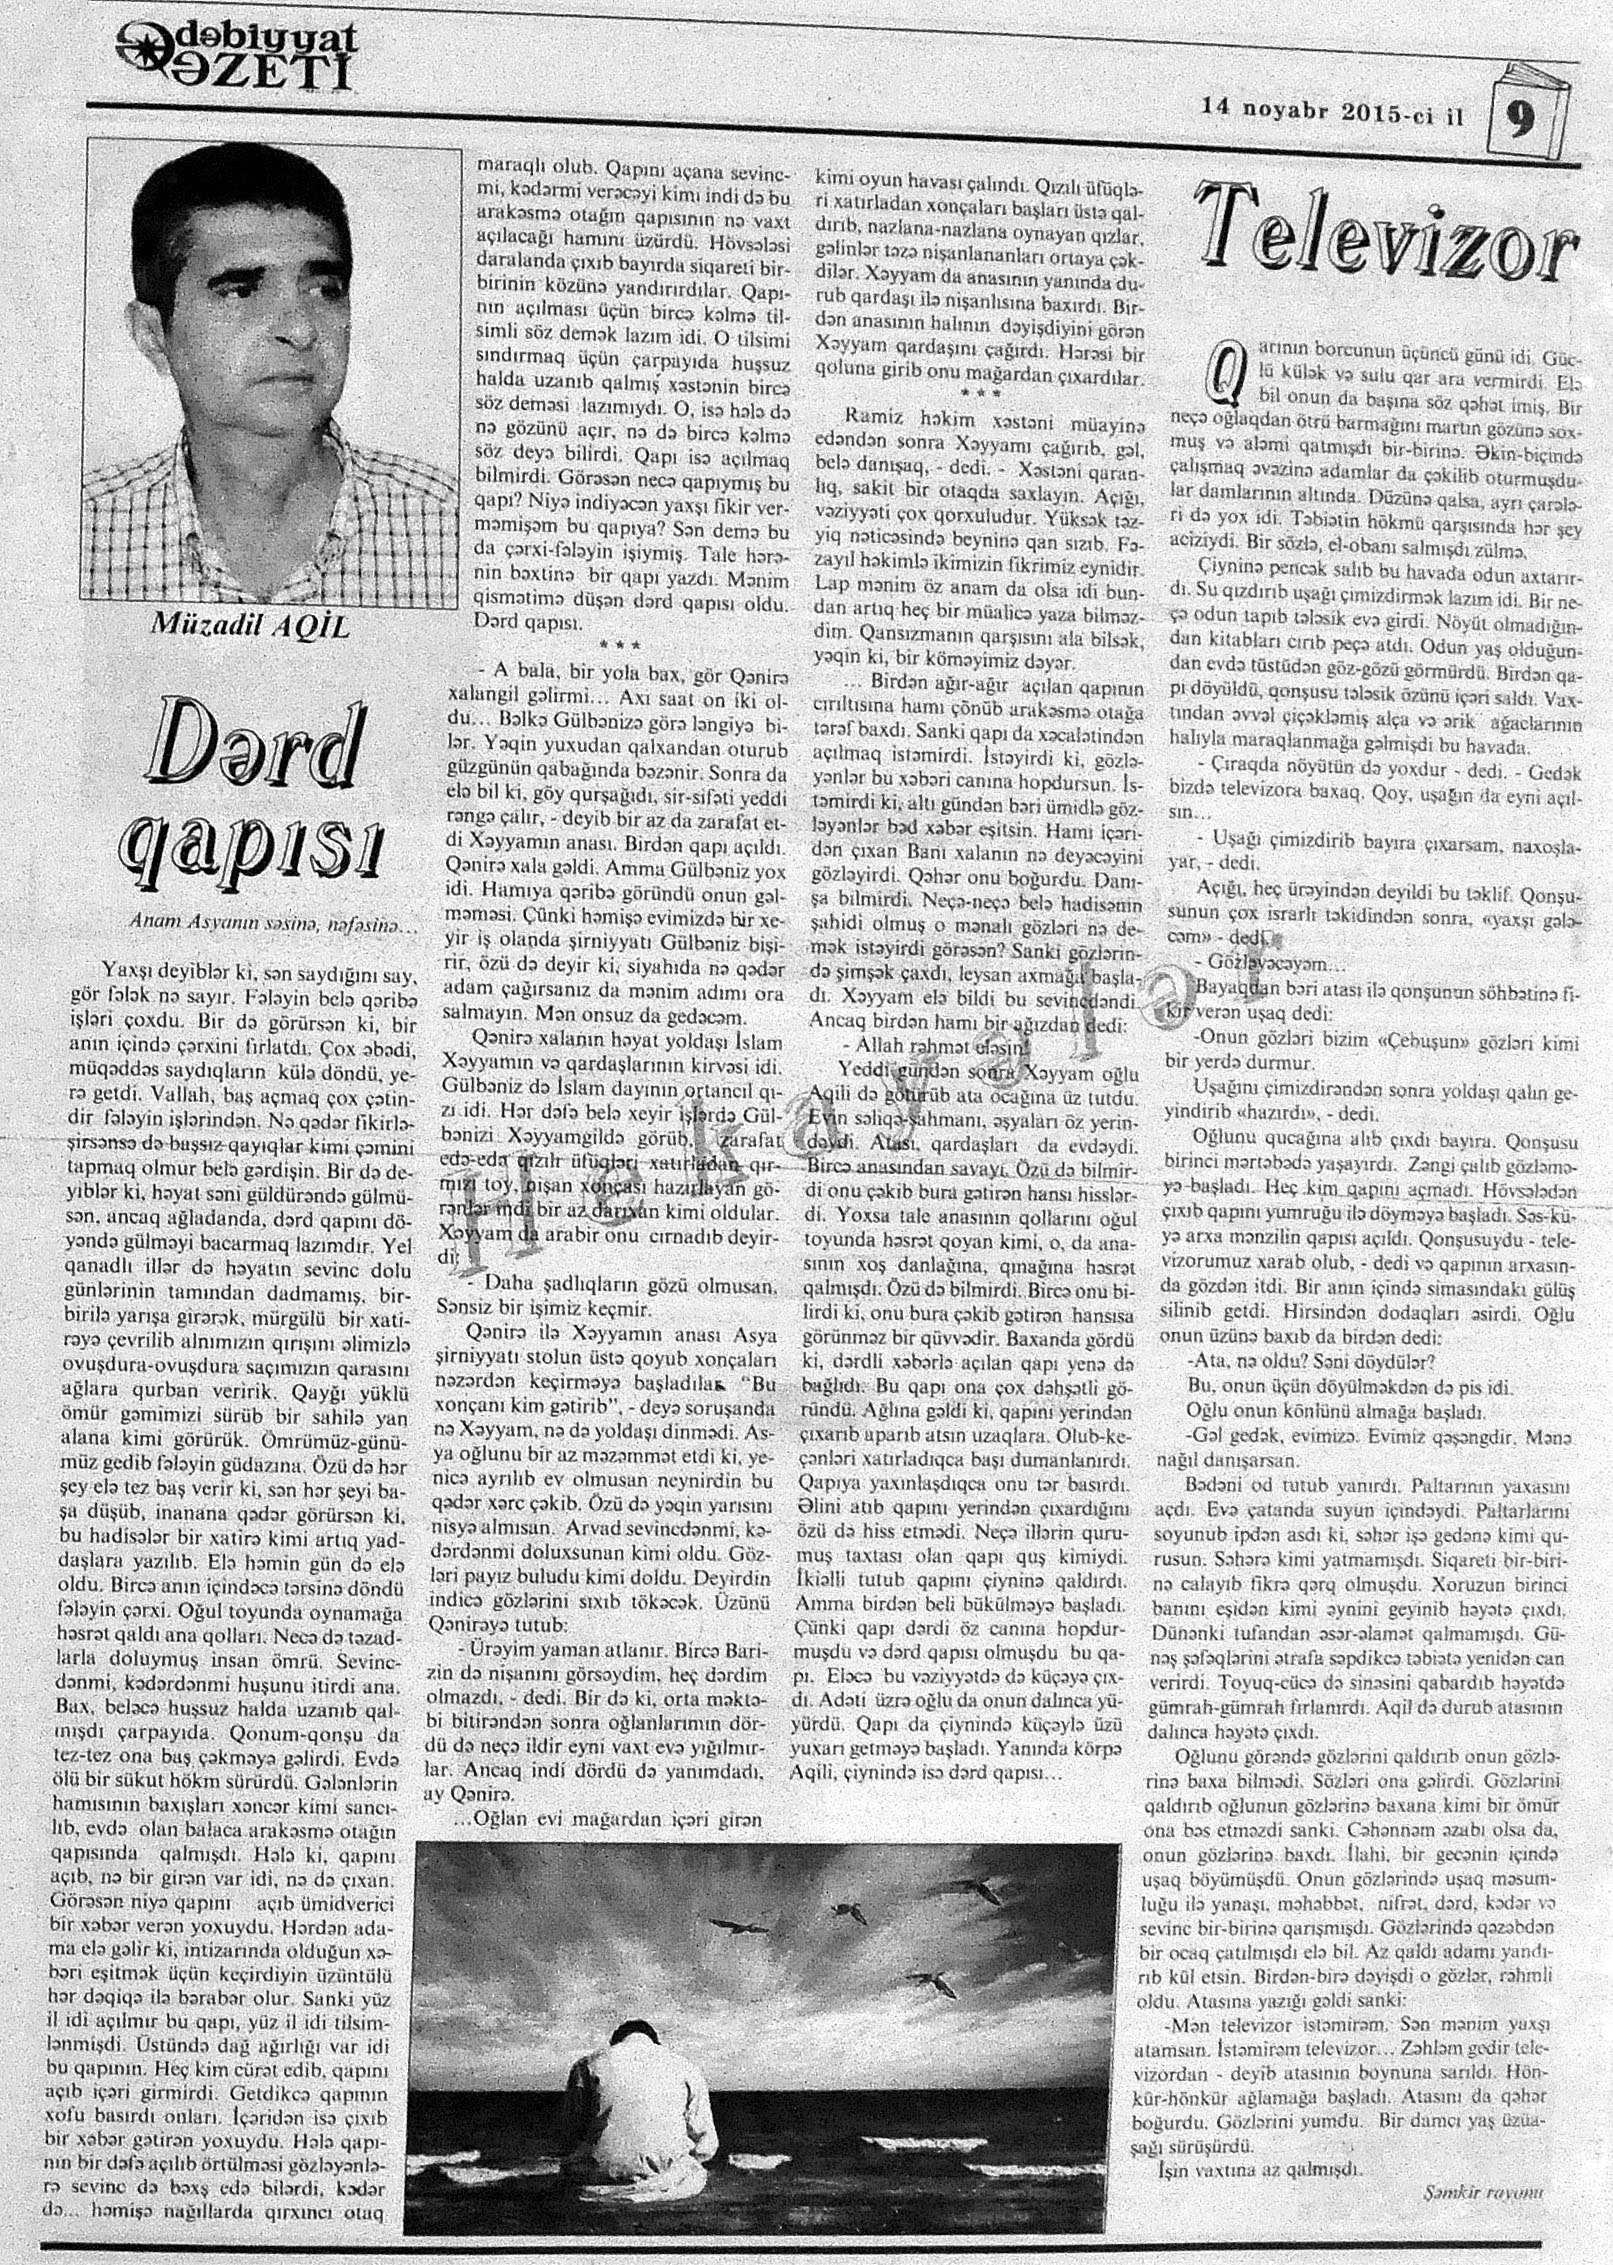 Ədəbiyyat
QƏZETİ
14 noyabr 2015-ci il
9
Müzadil AQİL
Dərd
qapısı
Anam Asyanın səsinə, nəfəsinə...
Yaxşı deyiblər ki, sən saydığını say,
gör fələk nə sayır. Fələyin belə qəribə
işləri çoxdu. Bir də görürsən ki, bir
anın içində çərxini fırlatdı. Çox əbədi,
müqəddəs saydıqların külə döndü, ye-
rə getdi. Vallah, baş açmaq çox çətin-
dir fələyin işlərindən. Nə qədər fikirlə-
şirsənsə də başsız qayıqlar kimi çəmini
tapmaq olmur belə gərdişin. Bir də de-
yiblər ki, həyat səni güldürəndə gülmü-
sən, ancaq ağladanda, dərd qapını dö-
yəndə gülməyi bacarmaq lazımdır. Yel
qanadlı illər də həyatın sevinc dolu
günlərinin tamından dadmamış, bir-
birilə yarışa girərək, mürgülü bir xati-
rəyə çevrilib alnımızın qırışını əlimizlə
ovuşdura-ovuşdura saçımızın qarasını
ağlara qurban veririk. Qayğı yüklü
ömür gəmimizi sürüb bir sahilə yan
alana kimi görürük. Ömrümüz-günü-
müz gedib fələyin güdazına. Özü də hər
şey elə tez baş verir ki, sən hər şeyi ba-
şa düşüb, inanana qədər görürsən ki,
bu hadisələr bir xatirə kimi artıq yad-
daşlara yazılıb. Elə həmin gün də elə
oldu. Bircə anın içindəcə tərsinə döndü
fələyin çərxi. Oğul toyunda oynamağa
həsrət qaldı ana qolları. Necə də təzad-
larla doluymuş insan ömrü. Sevinc-
dənmi, kədərdənmi huşunu itirdi ana.
Bax, beləcə huşsuz halda uzanıb qal-
mışdı çarpayıda. Qonum-qonşu da
tez-tez ona baş çəkməyə gəlirdi. Evdə
ölü bir sükut hökm sürürdü. Gələnlərin
hamısının baxışları xəncər kimi sancı-
lıb, evdə olan balaca arakəsmə otağın
qapısında qalmışdı. Hələ ki, qapını
açıb, nə bir girən var idi, nə də çıxan.
Görəsən niyə qapını açıb ümidverici
bir xəbər verən yoxuydu. Hərdən ada-
ma elə gəlir ki, intizarında olduğun xə-
bəri eşitmək üçün keçirdiyin üzüntülü
hər dəqiqə ilə bərabər olur. Sanki yüz
il idi açılmır bu qapı, yüz il idi tilsim-
lənmişdi. Üstündə dağ ağırlığı var idi
bu qapının. Heç kim cürət edib, qapını
açıb içəri girmirdi. Getdikcə qapının
xofu basırdı onları. İçəridən isə çıxıb
bir xəbər gətirən yoxuydu. Hələ qapı-
nın bir dəfə açılıb örtülməsi gözləyənlə-
rə sevinc də bəxş edə bilərdi, kədər
də... həmişə nağıllarda qırxıncı otaq
maraqlı olub. Qapını açana sevinc-
mi, kədərmi verəcəyi kimi indi də bu
arakəsmə otağın qapısının nə vaxt
açılacağı hamını üzürdü. Hövsələsi
daralanda çıxıb bayırda siqareti bir-
birinin közünə yandırırdılar. Qapı-
nın açılması üçün bircə kəlmə til-
simli söz demək lazım idi. O tilsimi
sındırmaq üçün çarpayıda huşsuz
halda uzanıb qalmış xəstənin bircə
söz deməsi lazımıydı. O, isə hələ də
nə gözünü açır, nə də bircə kəlmə
söz deyə bilirdi. Qapı isə açılmaq
bilmirdi. Görəsən necə qapıymış bu
qapı? Niyə indiyəcən yaxşı fikir ver-
məmişəm bu qapıya? Sən demə bu
da çərxi-fələyin işiymiş. Tale hərə-
nin bəxtinə bir qapı yazdı. Mənim
qismətimə düşən dərd qapısı oldu.
Dərd qapısı.
* * *
- A bala, bir yola bax, gör Qənirə
xalangil gəlirmi... Axı saat on iki ol-
du... Bəlkə Gülbənizə görə ləngiyə bi-
lər. Yəqin yuxudan qalxandan oturub
güzgünün qabağında bəzənir. Sonra da
elə bil ki, göy qurşağıdı, sir-sifəti yeddi
rəngə çalır, - deyib bir az da zarafat et-
di Xəyyamın anası. Birdən qapı açıldı.
Qənirə xala gəldi. Amma Gülbəniz yox
idi. Hamıya qəribə göründü onun gəl-
məməsi. Çünki həmişə evimizdə bir xe-
yir iş olanda şirniyyatı Gülbəniz bişi-
rir, özü də deyir ki, siyahıda nə qədər
adam çağırsanız da mənim adımı ora
salmayın. Mən onsuz da gedəcəm.
Qənirə xalanın həyat yoldaşı İslam
Xəyyamın və qardaşlarının kirvəsi idi.
Gülbəniz də İslam dayının ortancıl qı-
zı idi. Hər dəfə belə xeyir işlərdə Gül-
bənizi Xəyyamgildə görüb, zarafat
edə-edə qızılı üfüqləri xatırladan qır-
mızı toy, nişan xonçası hazırlayan gö-
rənlər indi bir az darıxan kimi oldular.
Xəyyam da arabir onu cırnadıb deyir-
di:
- Daha şadlıqların gözü olmusan.
Sənsiz bir işimiz keçmir.
Qənirə ilə Xəyyamın anası Asya
şirniyyatı stolun üstə qoyub xonçaları
nəzərdən keçirməyə başladılar. “Bu
xonçanı kim gətirib”, - deyə soruşanda
nə Xəyyam, nə də yoldaşı dinmədi. As-
ya oğlunu bir az məzəmmət etdi ki, ye-
nicə ayrılıb ev olmusan neynirdin bu
qədər xərc çəkib. Özü də yəqin yarısını
nisyə almısan. Arvad sevincdənmi, kə-
dərdənmi doluxsunan kimi oldu. Göz-
ləri payız buludu kimi doldu. Deyirdin
indicə gözlərini sıxıb tökəcək. Üzünü
Qənirəyə tutub:
- Ürəyim yaman atlanır. Bircə Bari-
zin də nişanını görsəydim, heç dərdim
olmazdı, - dedi. Bir də ki, orta məktə-
bi bitirəndən sonra oğlanlarımın dör-
dü də neçə ildir eyni vaxt evə yığılmır-
lar. Ancaq indi dördü də yanımdadı,
ay Qənirə.
...Oğlan evi mağardan içəri girən
kimi oyun havası çalındı. Qızılı üfüqlə-
ri xatırladan xonçaları başları üstə qal-
dırıb, nazlana-nazlana oynayan qızlar,
gəlinlər təzə nişanlananları ortaya çək-
dilər. Xəyyam da anasının yanında du-
rub qardaşı ilə nişanlısına baxırdı. Bir-
dən anasının halının dəyişdiyini görən
Xəyyam qardaşını çağırdı. Hərəsi bir
qoluna girib onu mağardan çıxardılar.
* * *
Ramiz həkim xəstəni müayinə
edəndən sonra Xəyyamı çağırıb, gəl,
belə danışaq, - dedi. - Xəstəni qaran-
lıq, sakit bir otaqda saxlayın. Açığı,
vəziyyəti çox qorxuludur. Yüksək təz-
yiq nəticəsində beyninə qan sızıb. Fə-
zayıl həkimlə ikimizin fikrimiz eynidir.
Lap mənim öz anam da olsa idi bun-
dan artıq heç bir müalicə yaza bilməz-
dim. Qansızmanın qarşısını ala bilsək,
yəqin ki, bir köməyimiz dəyər.
... Birdən ağır-ağır açılan qapının
cırıltısına hamı çönüb arakəsmə otağa
tərəf baxdı. Sanki qapı da xəcalətindən
açılmaq istəmirdi. İstəyirdi ki, gözlə-
yənlər bu xəbəri canına hopdursun. İs-
təmirdi ki, altı gündən bəri ümidlə göz-
ləyənlər bəd xəbər eşitsin. Hamı içəri-
dən çıxan Bani xalanın nə deyəcəyini
gözləyirdi. Qəhər onu boğurdu. Danı-
şa bilmirdi. Neçə-neçə belə hadisənin
şahidi olmuş o mənalı gözləri nə de-
mək istəyirdi görəsən? Sanki gözlərin-
də şimşək çaxdı, leysan axmağa başla-
dı. Xəyyam elə bildi bu sevincdəndi.
Ancaq birdən hamı bir ağızdan dedi:
- Allah rəhmət eləsin!
Yeddi gündən sonra Xəyyam oğlu
Aqili də götürüb ata ocağına üz tutdu.
Evin səliqə-sahmanı, əşyaları öz yerin-
dəydi. Atası, qardaşları da evdəydi.
Bircə anasından savayı. Özü də bilmir-
di onu çəkib bura gətirən hansı hisslər-
di. Yoxsa tale anasının qollarını oğul
toyunda həsrət qoyan kimi, o, da ana-
sının xoş danlağına, qınağına həsrət
qalmışdı. Özü də bilmirdi. Bircə onu bi-
lirdi ki, onu bura çəkib gətirən hansısa
görünməz bir qüvvədir. Baxanda gördü
ki, dərdli xəbərlə açılan qapı yenə də
bağlıdı. Bu qapı ona çox dəhşətli gö-
ründü. Ağlına gəldi ki, qapını yerindən
çıxarıb aparıb atsın uzaqlara. Olub-ke-
çənləri xatırladıqca başı dumanlanırdı.
Qapıya yaxınlaşdıqca onu tər basırdı.
Əlini atıb qapını yerindən çıxardığını
özü də hiss etmədi. Neçə illərin quru-
muş taxtası olan qapı quş kimiydi.
İkiəlli tutub qapını çiyninə qaldırdı.
Amma birdən beli bükülməyə başladı.
Çünki qapı dərdi öz canına hopdur-
muşdu və dərd qapısı olmuşdu bu qa-
pı. Eləcə bu vəziyyətdə də küçəyə çıx-
dı. Adəti üzrə oğlu da onun dalınca yü-
yürdü. Qapı da çiynində küçəylə üzü
yuxarı getməyə başladı. Yanında körpə
Aqili, çiynində isə dərd qapısı...
Hekayələr
Televizor
Qarının borcunun üçüncü günü idi. Güc-
lü külək və sulu qar ara vermirdi. Elə
bil onun da başına söz qəhət imiş. Bir
neçə oğlaqdan ötrü barmağını martın gözünə sox-
muş və aləmi qatmışdı bir-birinə. Əkin-biçində
çalışmaq əvəzinə adamlar da çəkilib oturmuşdu-
lar damlarının altında. Düzünə qalsa, ayrı çarələ-
ri də yox idi. Təbiətin hökmü qarşısında hər şey
aciziydi. Bir sözlə, el-obanı salmışdı zülmə.
Çiyninə pencək salıb bu havada odun axtarır-
dı. Su qızdırıb uşağı çimizdirmək lazım idi. Bir ne-
çə odun tapıb tələsik evə girdi. Nöyüt olmadığın-
dan kitabları cırıb peçə atdı. Odun yaş olduğun-
dan evdə tüstüdən göz-gözü görmürdü. Birdən qa-
pı döyüldü, qonşusu tələsik özünü içəri saldı. Vax-
tından əvvəl çiçəkləmiş alça və ərik ağaclarının
halıyla maraqlanmağa gəlmişdi bu havada.
- Çıraqda nöyütün də yoxdur - dedi. - Gedək
bizdə televizora baxaq. Qoy, uşağın da eyni açıl-
sın...
- Uşağı çimizdirib bayıra çıxarsam, naxoşla-
yar, - dedi.
Açığı, heç ürəyindən deyildi bu təklif. Qonşu-
sunun çox israrlı təkidindən sonra, «yaxşı gələ-
cəm» - dedi.
- Gözləyəcəyəm...
Bayaqdan bəri atası ilə qonşunun söhbətinə fi-
kir verən uşaq dedi:
-Onun gözləri bizim «Çebuşun» gözləri kimi
bir yerdə durmur.
Uşağını çimizdirəndən sonra yoldaşı qalın ge-
yindirib «hazırdı», - dedi.
Oğlunu qucağına alıb çıxdı bayıra. Qonşusu
birinci mərtəbədə yaşayırdı. Zəngi çalıb gözləmə-
yə başladı. Heç kim qapını açmadı. Hövsələdən
çıxıb qapını yumruğu ilə döyməyə başladı. Səs-kü-
yə arxa mənzilin qapısı açıldı. Qonşusuydu - tele-
vizorumuz xarab olub, - dedi və qapının arxasın-
da gözdən itdi. Bir anın içində simasındakı gülüş
silinib getdi. Hirsindən dodaqları əsirdi. Oğlu
onun üzünə baxıb da birdən dedi:
-Ata, nə oldu? Səni döydülər?
Bu, onun üçün döyülməkdən də pis idi.
Oğlu onun könlünü almağa başladı.
-Gəl gedək, evimizə. Evimiz qəşəngdir. Mənə
nağıl danışarsan.
Bədəni od tutub yanırdı. Paltarının yaxasını
açdı. Evə çatanda suyun içindəydi. Paltarlarını
soyunub ipdən asdı ki, səhər işə gedənə kimi qu-
rusun. Səhərə kimi yatmamışdı. Siqareti bir-biri-
nə calayıb fikrə qərq olmuşdu. Xoruzun birinci
banını eşidən kimi əynini geyinib həyətə çıxdı.
Dünənki tufandan əsər-əlamət qalmamışdı. Gü-
nəş şəfəqlərini ətrafa səpdikcə təbiətə yenidən can
verirdi. Toyuq-cücə də sinəsini qabardıb həyətdə
gümrah-gümrah fırlanırdı. Aqil də durub atasının
dalınca həyətə çıxdı.
Oğlunu görəndə gözlərini qaldırıb onun gözlə-
rinə baxa bilmədi. Sözləri ona gəlirdi. Gözlərini
qaldırıb oğlunun gözlərinə baxana kimi bir ömür
ona bəs etməzdi sanki. Cəhənnəm əzabı olsa da,
onun gözlərinə baxdı. İlahi, bir gecənin içində
uşaq böyümüşdü. Onun gözlərində uşaq məsum-
luğu ilə yanaşı, məhəbbət, nifrət, dərd, kədər və
sevinc bir-birinə qarışmışdı. Gözlərində qəzəbdən
bir ocaq çatılmışdı elə bil. Az qaldı adamı yandı-
rıb kül etsin. Birdən-birə dəyişdi o gözlər, rəhmli
oldu. Atasına yazığı gəldi sanki:
-Mən televizor istəmirəm. Sən mənim yaxşı
atamsan. İstəmirəm televizor... Zəhləm gedir tele-
vizordan - deyib atasının boynuna sarıldı. Hön-
kür-hönkür ağlamağa başladı. Atasını da qəhər
boğurdu. Gözlərini yumdu. Bir damcı yaş üzüa-
şağı sürüşürdü.
İşin vaxtına az qalmışdı.
Şəmkir rayonu